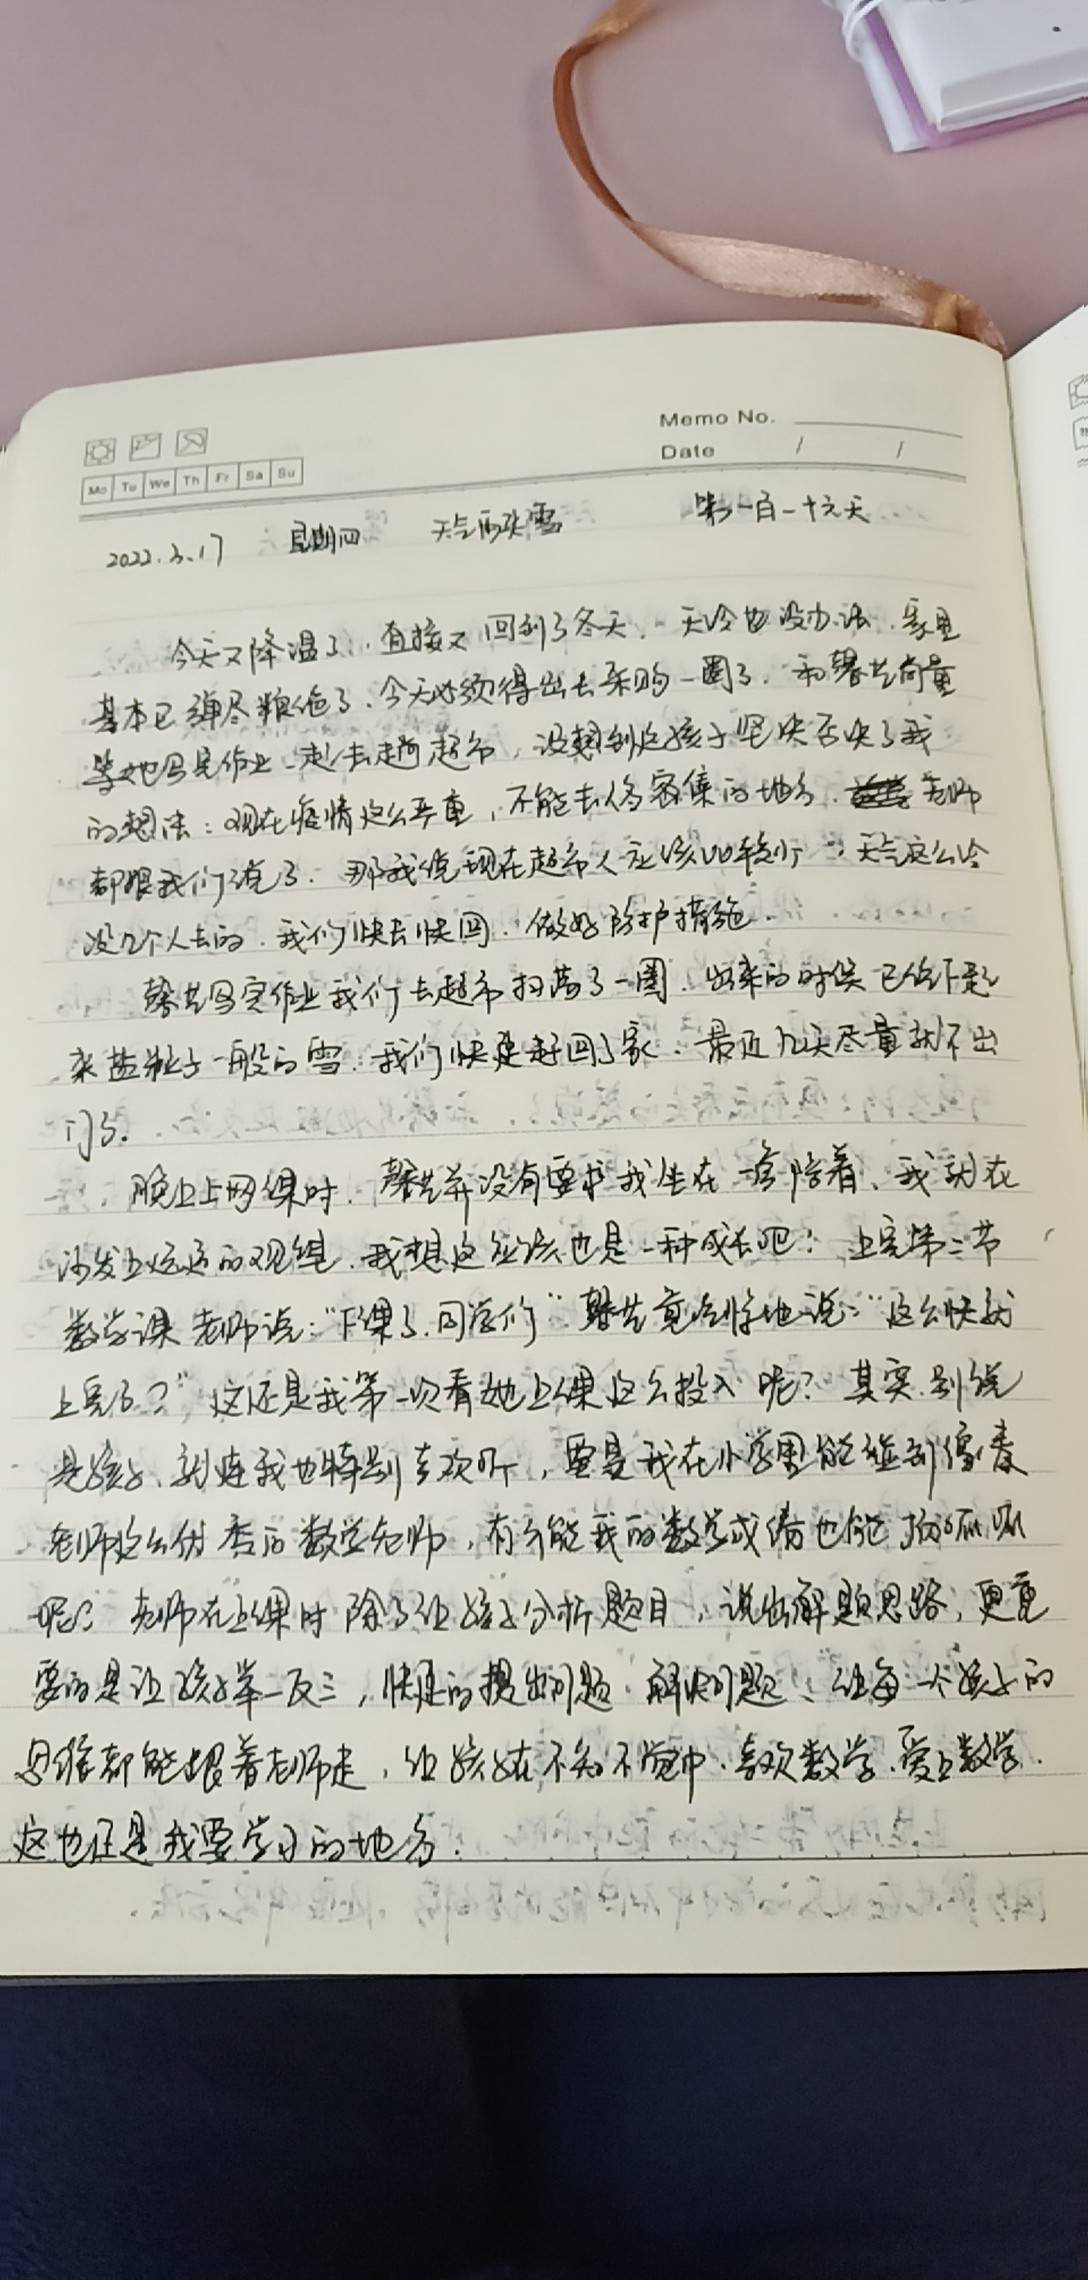 Memo No.
Date / /
Mo Tu We Th Fr Sa Su
2022.3.17 星期四 天气雨夹雪 第一百一十六天
今天又降温了,直接又回到了冬天,天冷也没办法,家里
基本已弹尽粮绝了,今天必须得出去采购一圈了,和馨艺商量
等她写完作业一起去趟超市,没想到这孩子坚决否决了我
的想法:现在疫情这么严重,不能去人多密集的地方,老师
都跟我们说了。那我说现在超市人应该比较少,天气这么冷
没几个人去的,我们快去快回,做好防护措施。
馨艺写完作业我们去超市扫荡了一圈,出来的时候已经下起
来盐粒子一般的雪,我们快速赶回了家,最近几天尽量就不出
门了。
晚上上网课时,馨艺并没有要求我坐在一旁陪着,我就在
沙发上远远的观望,我想这应该也是一种成长吧!上完第二节
数学课老师说:“下课了,同学们”馨艺竟吃惊地说:“这么快就
上完了?”这还是我第一次看她上课这么投入呢?其实别说
是孩子,就连我也特别喜欢听,要是我在小学里能碰到像秦
老师这么优秀的数学老师,有可能我的数学成绩也能顶呱呱
呢?老师在上课时除了让孩子分析题目,说出解题思路,更重
要的是让孩子举一反三,快速的提出问题,解决问题,让每一个孩子的
思维都能跟着老师走,让孩子在不知不觉中,喜欢数学,爱上数学.
这也正是我要学习的地方.